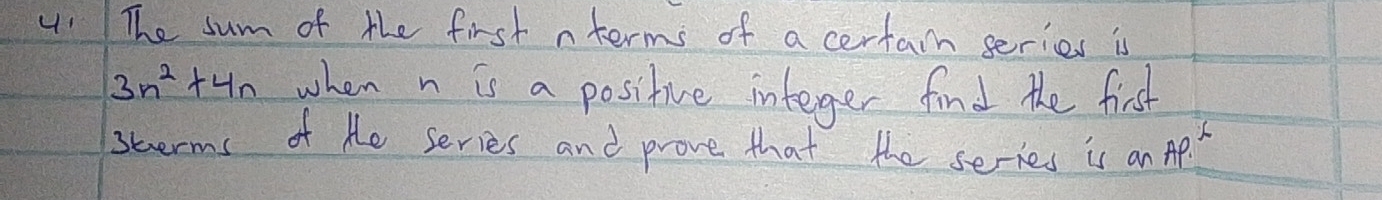 4. The sum of the first n terms of a certain series is
3n² + 4n when n is a positive integer find the first
3terms of the series and prove that the series is an AP.